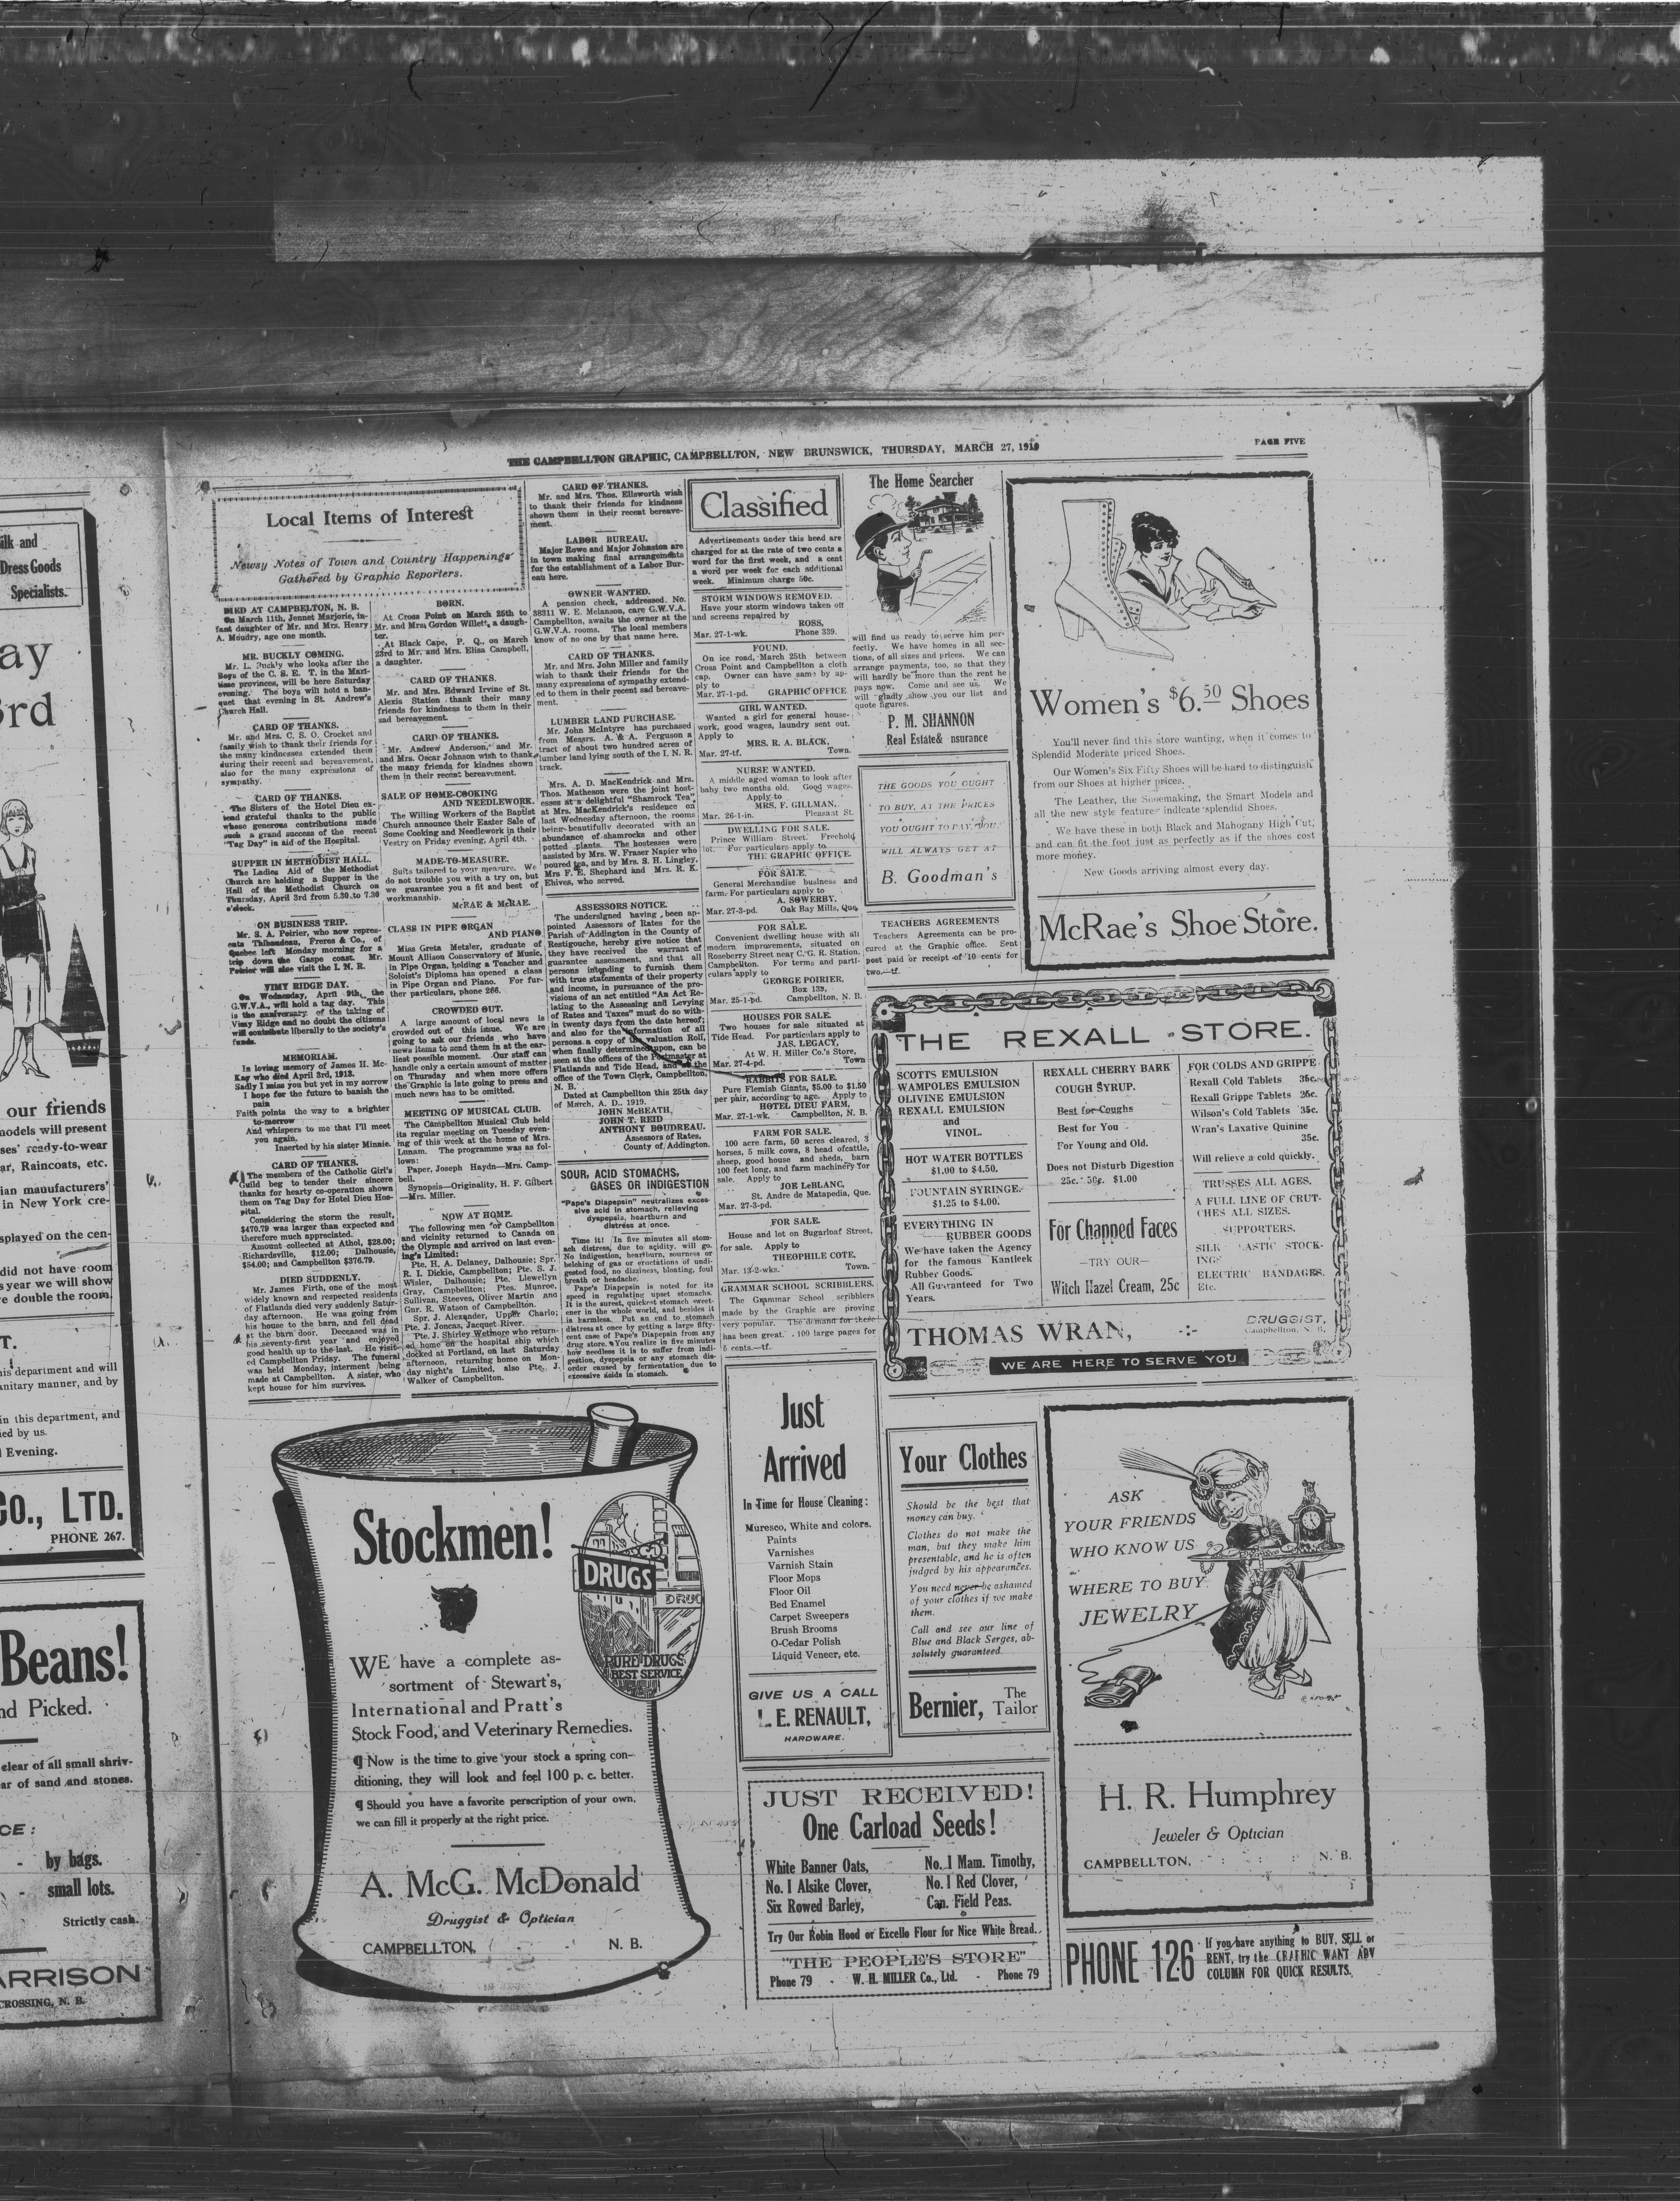 THE CAMPBELLTON GRAPHIC, CAMPBELLTON, NEW BRUNSWICK, THURSDAY, MARCH 27, 1919
PAGE FIVE
ilk and
Dress Goods
Specialists.
ay
3rd
our friends
nodels will present
ses' ready-to-wear
ar, Raincoats, etc.
ian manufacturers'
in New York cre-
splayed on the cen-
did not have room
s year we will show
e double the room.
T.
his department and will
anitary manner, and by
in this department, and
ied by us.
Evening.
Co., LTD.
PHONE 267.
Beans!
nd Picked.
clear of all small shriv-
ar of sand and stones.
CE:
- by bags.
- small lots.
Strictly cash.
ARRISON
CROSSING, N. B.
Local Items of Interest
Newsy Notes of Town and Country Happenings
Gathered by Graphic Reporters.
DIED AT CAMPBELTON, N. B.
On March 11th, Jennet Marjorie, in-
fant daughter of Mr. and Mrs. Henry
A. Moudry, age one month.
MR. BUCKLY COMING.
Mr. L. Buckly who looks after the
Boys of the C. S. E. T. in the Mari-
time provinces, will be here Satsurday
evening. The boys will hold a ban-
quet that evening in St. Andrew's
Church Hall.
CARD OF THANKS.
Mr. and Mrs. C. S. O. Crocket and
family wish to thank their friends for
the many kindnesses extended them
during their recent sad bereavement,
also for the many expressions of
sympathy.
CARD OF THANKS.
The Sisters of the Hotel Dieu ex-
tend grateful thanks to the public
whose generous contributions made
such a grand success of the recent
"Tag Day" in aid of the Hospital.
SUPPER IN METHODIST HALL.
The Ladies Aid of the Methodist
Church are holding a Supper in the
Hall of the Methodist Church on
Thursday, April 3rd from 5.30 to 7.30
o'clock.
ON BUSINESS TRIP.
Mr. S. A. Poirier, who now repres-
ents Thibaudeau, Freres & Co., of
Quebec left Monday morning for a
trip down the Gaspe coast. Mr.
Poirier will also visit the I. N. R.
VIMY RIDGE DAY.
On Wednesday, April 9th, the
G.W.V.A. will hold a tag day. This
is the anniversary of the taking of
Vimy Ridge and no doubt the citizens
will contribute liberally to the society's
funds.
MEMORIAM.
In loving memory of James H. Mc-
Kay who died April 3rd, 1918.
Sadly I miss you but yet in my sorrow
I hope for the future to banish the
pain
Faith points the way to a brighter
to-morrow
And whispers to me that I'll meet
you again.
Inserted by his sister Minnie.
CARD OF THANKS.
The members of the Catholic Girl's
Guild beg to tender their sincere
thanks for hearty co-operation shown
them on Tag Day for Hotel Dieu Hos-
pital.
Considering the storm the result,
$470.79 was larger than expected and
therefore much appreciated.
Amount collected at Athol, $28.00;
Richardsville, $12.00; Dalhousie,
$54.00; and Campbellton $376.79.
DIED SUDDENLY.
Mr. James Firth, one of the most
widely known and respected residents
of Flatlands died very suddenly Satur-
day afternoon. He was going from
his house to the barn, and fell dead
at the barn door. Deceased was in
his seventy-first year and enjoyed
good health up to the last. He visit-
ed Campbellton Friday. The funeral
was held Monday, interment being
made at Campbellton. A sister, who
kept house for him survives.
BORN.
At Cross Point on March 25th to
Mr. and Mrs Gordon Willett, a daugh-
ter.
At Black Cape, P. Q., on March
23rd to Mr. and Mrs. Elisa Campbell,
a daughter.
CARD OF THANKS.
Mr. and Mrs. Edward Irvine of St.
Alexis Station thank their many
friends for kindness to them in their
sad bereavement.
CARD OF THANKS.
Mr. Andrew Anderson, and Mr.
and Mrs. Oscar Johnson wish to thank
the many friends for kindnes shown
them in their recent bereavement.
SALE OF HOME-COOKING
AND NEEDLEWORK.
The Willing Workers of the Baptist
Church announce their Easter Sale of
Some Cooking and Needlework in their
Vestry on Friday evening, April 4th.
MADE-TO-MEASURE.
Suits tailored to your measure. We
do not trouble you with a try on, but
we guarantee you a fit and best of
workmanship.
McRAE & McRAE.
CLASS IN PIPE ORGAN
AND PIANO
Miss Greta Metzler, graduate of
Mount Allison Conservatory of Music,
in Pipe Organ, holding a Teacher and
Soloist's Diploma has opened a class
in Pipe Organ and Piano. For fur-
ther particulars, phone 266.
CROWDED OUT.
A large amount of local news is
crowded out of this issue. We are
going to ask our friends who have
news items to send them in at the ear-
liest possible moment. Our staff can
handle only a certain amount of matter
on Thursday and when more offers
the Graphic is late going to press and
much news has to be omitted.
MEETING OF MUSICAL CLUB.
The Campbellton Musical Club held
its regular meeting on Tuesday even-
ing of this week at the home of Mrs.
Lunam. The programme was as fol-
lows:
Paper, Joseph Haydn—Mrs. Camp-
bell.
Synopsis—Originality, H. F. Gilbert
—Mrs. Miller.
NOW AT HOME.
The following men for Campbellton
and vicinity returned to Canada on
the Olympic and arrived on last even-
ing's Limited:
Pte. H. A. Delaney, Dalhousie; Spr.
R. I. Dickie, Campbellton; Pte. S. J.
Wisler, Dalhousie; Pte. Llewellyn
Gray, Campbellton; Ptes. Munroe,
Sullivan, Steeves, Oliver Martin and
Gnr. R. Watson of Campbellton.
Spr. J. Alexander, Upper Charlo;
Pte. J. Joncas, Jacquet River.
Pte. J. Shirley Wetmore who return-
ed home on the hospital ship which
docked at Portland, on last Saturday
afternoon, returning home on Mon-
day night's Limited, also Pte. J.
Walker of Campbellton.
CARD OF THANKS.
Mr. and Mrs. Thos. Ellsworth wish
to thank their friends for kindness
shown them in their recent bereave-
ment.
LABOR BUREAU.
Major Rowe and Major Johnston are
in town making final arrangements
for the establishment of a Labor Bur-
eau here.
OWNER WANTED.
A pension check, addressed, No.
38311 W. E. Melanson, care G.W.V.A.
Campbellton, awaits the owner at the
G.W.V.A. rooms. The local members
know of no one by that name here.
CARD OF THANKS.
Mr. and Mrs. John Miller and family
wish to thank their friends for the
many expressions of sympathy extend-
ed to them in their recent sad bereave-
ment.
LUMBER LAND PURCHASE.
Mr. John McIntyre has purchased
from Messrs. A. & A. Ferguson a
tract of about two hundred acres of
lumber land lying south of the I. N. R.
track.
Mrs. A. D. MacKendrick and Mrs.
Thos. Matheson were the joint host-
esses at a delightful "Shamrock Tea"
at Mrs. MacKendrick's residence on
last Wednesday afternoon, the rooms
being beautifully decorated with an
abundance of shamrocks and other
potted plants. The hostesses were
assisted by Mrs. W. Fraser Napier who
poured tea, and by Mrs. S. H. Lingley,
Mrs F. E. Shephard and Mrs. R. K.
Shives, who served.
ASSESSORS NOTICE.
The undersigned having been ap-
pointed Assessors of Rates for the
Parish of Addington in the County of
Restigouche, hereby give notice that
they have received the warrant of
guarantee assessment, and that all
persons intending to furnish them
with true statements of their property
and income, in pursuance of the pro-
visions of an act entitled "An Act Re-
lating to the Assessing and Levying
of Rates and Taxes" must do so with-
in twenty days from the date hereof;
and also for the information of all
persons a copy of the valuation Roll,
when finally determined upon, can be
seen at the offices of the Postmaster at
Flatlands and Tide Head, and at the
office of the Town Clerk, Campbellton,
N. B.
Dated at Campbellton this 25th day
of March, A. D., 1919.
JOHN McBEATH,
JOHN T. REID
ANTHONY BOUDREAU.
Assessors of Rates,
County of Addington.
SOUR, ACID STOMACHS,
GASES OR INDIGESTION
"Pape's Diapepsin" neutralizes exces-
sive acid in stomach, relieving
dyspepsia, heartburn and
distress at once.
Time it! In five minutes all stom-
ach distress, due to acidity, will go.
No indigestion, heartburn, sourness or
belching of gas or eructations of undi-
gested food, no dizziness, bloating, foul
breath or headache.
Pape's Diapepsin is noted for its
speed in regulating upset stomachs.
It is the surest, quickest stomach sweet-
ener in the whole world, and besides it
is harmless. Put an end to stomach
distress at once by getting a large fifty-
cent case of Pape's Diapepsin from any
drug store. You realize in five minutes
how needless it is to suffer from indi-
gestion, dyspepsia or any stomach dis-
order caused by fermentation due to
excessive acids in stomach.
Classified
Advertisements under this head are
charged for at the rate of two cents a
word for the first week, and a cent
a word per week for each additional
week. Minimum charge 50c.
STORM WINDOWS REMOVED.
Have your storm windows taken off
and screens repaired by
ROSS,
Mar. 27-1-wk. Phone 339.
FOUND.
On ice road, March 25th between
Cross Point and Campbellton a cloth
cap. Owner can have same by ap-
ply to
Mar. 27-1-pd. GRAPHIC OFFICE
GIRL WANTED.
Wanted a girl for general house-
work, good wages, laundry sent out.
Apply to
MRS. R. A. BLACK,
Mar. 27-tf. Town.
NURSE WANTED.
A middle aged woman to look after
baby two months old. Good wages.
Apply to
MRS. F. GILLMAN,
Mar. 26-1-in. Pleasant St.
DWELLING FOR SALE.
Prince William Street. Freehold
lot. For particulars apply to
THE GRAPHIC OFFICE.
FOR SALE.
General Merchandise business and
farm. For particulars apply to
A. SOWERBY,
Mar. 27-3-pd. Oak Bay Mills, Que.
FOR SALE.
Convenient dwelling house with all
modern improvements, situated on
Roseberry Street near C. G. R. Station,
Campbellton. For terms and parti-
culars apply to
GEORGE POIRIER,
Box 139,
Mar. 25-1-pd. Campbellton, N. B.
HOUSES FOR SALE.
Two houses for sale situated at
Tide Head. For particulars apply to
JAS. LEGACY,
At W. H. Miller Co.'s Store,
Mar. 27-4-pd. Town
RABBITS FOR SALE.
Pure Flemish Giants, $5.00 to $1.50
per pair, according to age. Apply to
HOTEL DIEU FARM,
Mar. 27-1-wk. Campbellton, N. B.
FARM FOR SALE.
100 acre farm, 50 acres cleared, 3
horses, 5 milk cows, 8 head of cattle,
sheep, good house and sheds, barn
100 feet long, and farm machinery for
sale. Apply to
JOE LeBLANC,
St. Andre de Matapedia, Que.
Mar. 27-3-pd.
FOR SALE.
House and lot on Sugarloaf Street,
for sale. Apply to
THEOPHILE COTE,
Mar. 13-2-wks. Town.
GRAMMAR SCHOOL SCRIBBLERS.
The Grammar School scribblers
made by the Graphic are proving
very popular. The demand for these
has been great. 100 large pages for
5 cents.—tf.
The Home Searcher
will find us ready to serve him per-
fectly. We have homes in all sec-
tions, of all sizes and prices. We can
arrange payments, too, so that they
will hardly be more than the rent he
pays now. Come and see us. We
will gladly show you our list and
quote figures.
P. M. SHANNON
Real Estate & nsurance
THE GOODS YOU OUGHT
TO BUY, AT THE PRICES
YOU OUGHT TO PAY, YOU
WILL ALWAYS GET AT
B. Goodman's
TEACHERS AGREEMENTS
Teachers Agreements can be pro-
cured at the Graphic office. Sent
post paid or receipt of 10 cents for
two.—tf.
Women's $6.50 Shoes
You'll never find this store wanting, when it comes to
Splendid Moderate priced Shoes.
Our Women's Six Fifty Shoes will be hard to distinguish
from our Shoes at higher prices.
The Leather, the Shoemaking, the Smart Models and
all the new style features indicate splendid Shoes.
We have these in both Black and Mahogany High Cut,
and can fit the foot just as perfectly as if the shoes cost
more money.
New Goods arriving almost every day.
McRae's Shoe Store.
THE REXALL STORE.
SCOTTS EMULSION
WAMPOLES EMULSION
OLIVINE EMULSION
REXALL EMULSION
and
VINOL.
HOT WATER BOTTLES
$1.00 to $4.50.
FOUNTAIN SYRINGE.
$1.25 to $4.00.
EVERYTHING IN
RUBBER GOODS
We have taken the Agency
for the famous Kantleek
Rubber Goods.
All Guaranteed for Two
Years.
REXALL CHERRY BARK
COUGH SYRUP.
Best for Coughs
Best for You
For Young and Old.
Does not Disturb Digestion
25c. 50c. $1.00
For Chapped Faces
—TRY OUR—
Witch Hazel Cream, 25c
FOR COLDS AND GRIPPE
Rexall Cold Tablets 35c.
Rexall Grippe Tablets 25c.
Wilson's Cold Tablets 35c.
Wran's Laxative Quinine
35c.
Will relieve a cold quickly.
TRUSSES ALL AGES.
A FULL LINE OF CRUT-
CHES ALL SIZES.
SUPPORTERS.
SILK ASTIC STOCK-
INGS
ELECTRIC BANDAGES,
Etc.
THOMAS WRAN, -:- DRUGGIST,
Campbellton, N. B.
WE ARE HERE TO SERVE YOU
Stockmen!
DRUGS
DRUG
PURE DRUGS
BEST SERVICE
WE have a complete as-
sortment of Stewart's,
International and Pratt's
Stock Food, and Veterinary Remedies.
¶ Now is the time to give your stock a spring con-
ditioning, they will look and feel 100 p. c. better.
¶ Should you have a favorite perscription of your own,
we can fill it properly at the right price.
A. McG. McDonald
Druggist & Optician
CAMPBELLTON, - N. B.
Just
Arrived
In Time for House Cleaning:
Muresco, White and colors.
Paints
Varnishes
Varnish Stain
Floor Mops
Floor Oil
Bed Enamel
Carpet Sweepers
Brush Brooms
O-Cedar Polish
Liquid Veneer, etc.
GIVE US A CALL
L. E. RENAULT,
HARDWARE.
Your Clothes
Should be the best that
money can buy.
Clothes do not make the
man, but they make him
presentable, and he is often
judged by his appearances.
You need never be ashamed
of your clothes if we make
them.
Call and see our line of
Blue and Black Serges, ab-
solutely guaranteed.
Bernier, The
Tailor
ASK
YOUR FRIENDS
WHO KNOW US
WHERE TO BUY
JEWELRY
H. R. Humphrey
Jeweler & Optician
CAMPBELLTON, : : : N. B.
JUST RECEIVED!
One Carload Seeds!
White Banner Oats,
No. 1 Alsike Clover,
Six Rowed Barley,
No. 1 Mam. Timothy,
No. 1 Red Clover,
Can. Field Peas.
Try Our Robin Hood or Excello Flour for Nice White Bread.
"THE PEOPLE'S STORE"
Phone 79 - W. H. MILLER Co., Ltd. - Phone 79
PHONE 126
If you have anything to BUY, SELL or
RENT, try the GRAPHIC WANT ADV
COLUMN FOR QUICK RESULTS.